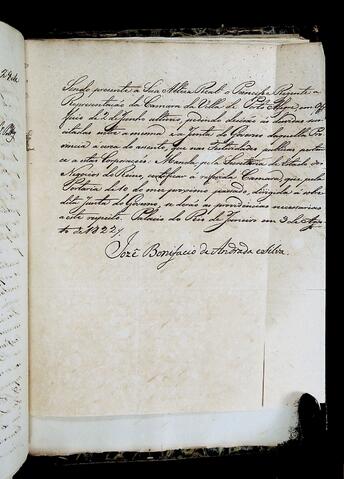 Sendo presente à Sua Alteza Real o Principe Regente a
Representação da Camara da Villa de Porto Alegre em Of-
ficio de 2 de Junho ultimo, pedindo decisão às duvidas sus-
citadas entre a mesma e a Junta do Governo daquella Pro-
vincia a cerca do assento, que nas Festividades publicas perten-
ce a estas Corporações: Manda, pela Secretaria de Estado dos
Negocios do Reino, certificar à referida Camara, que pela
Portaria de 10 do mez proximo passado, dirigida à sobre-
dita Junta do Governo, se derão as providencias necessarias
a este respeito. Palacio do Rio de Janeiro em 3 de Agos-
to de 1822.
José Bonifacio de Andrada e Silva.